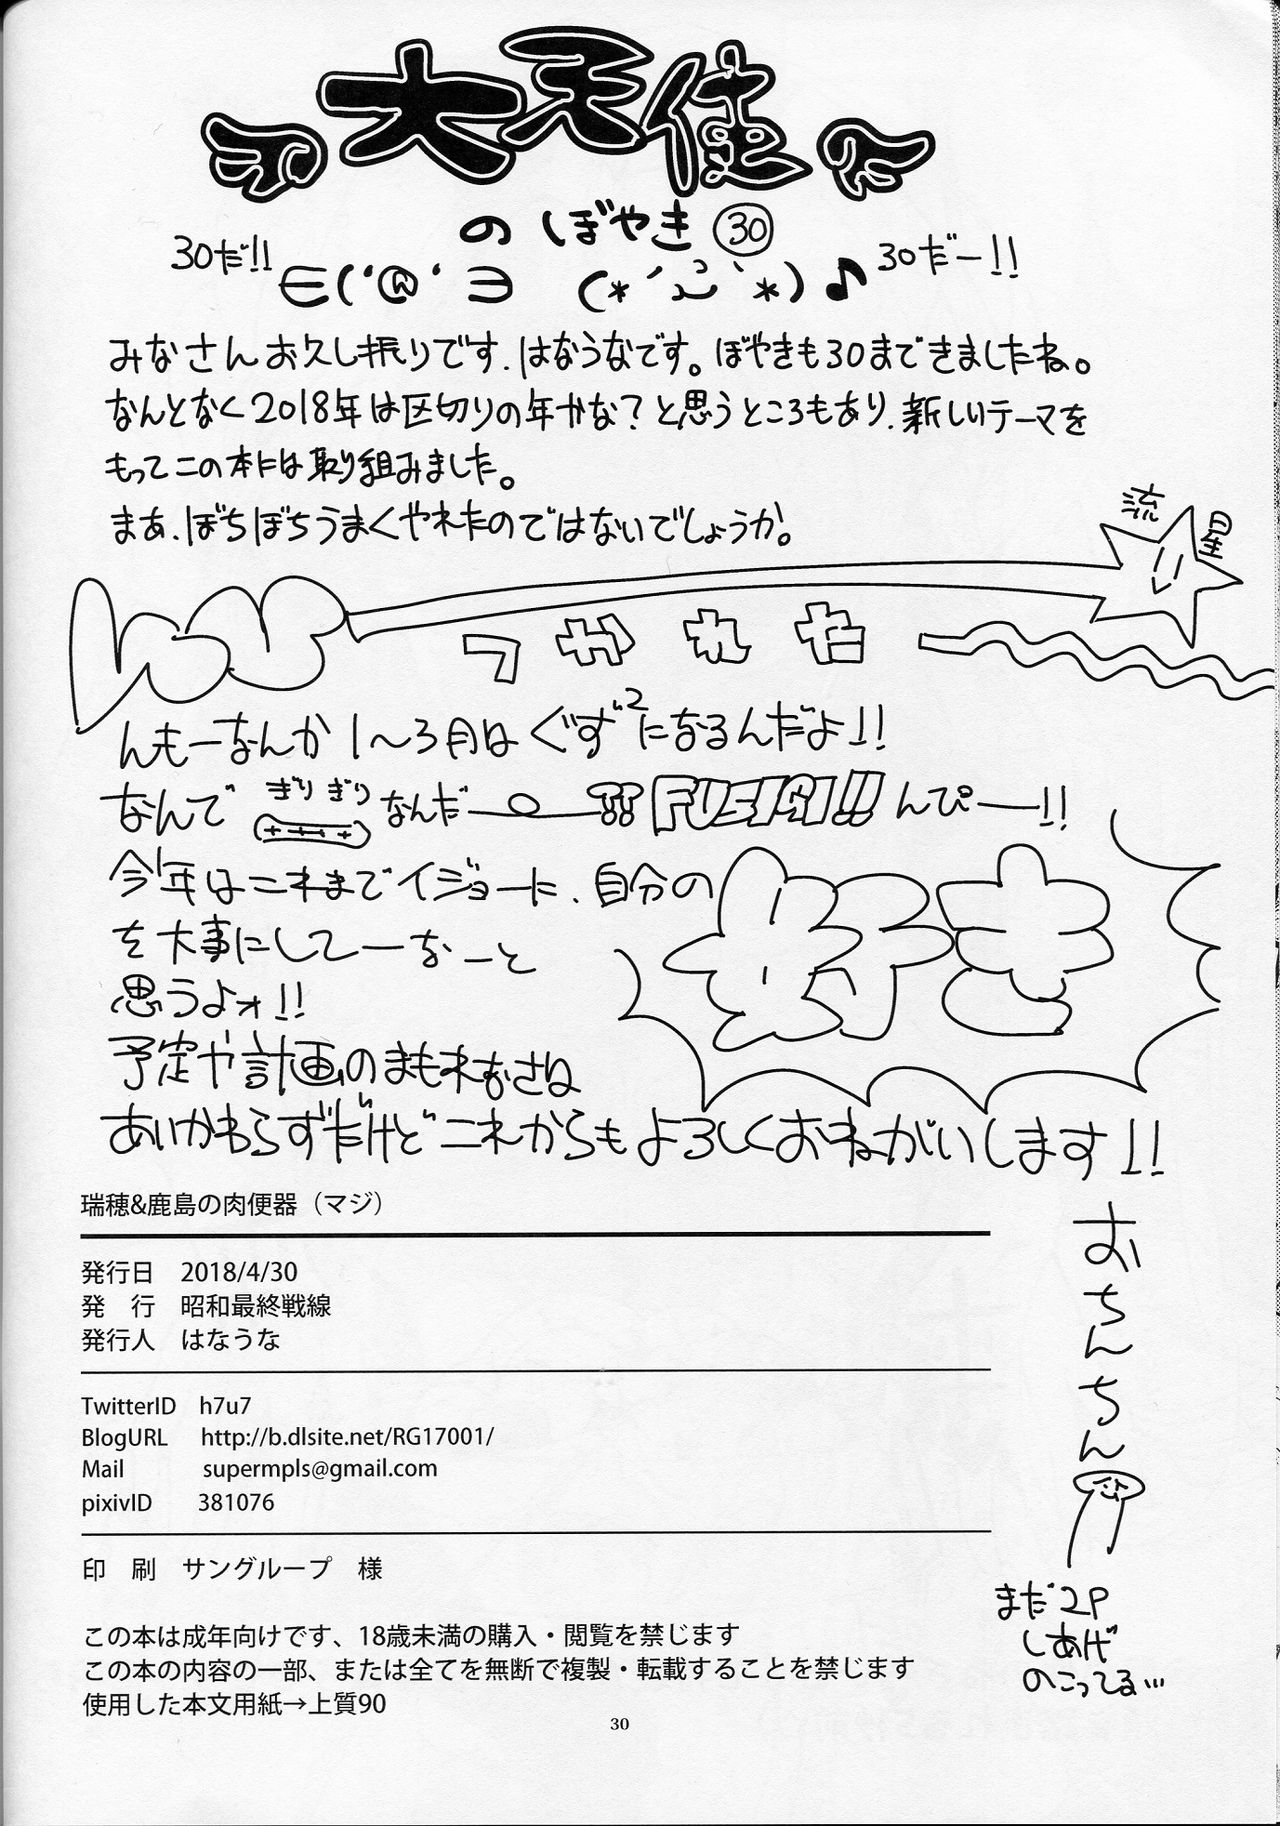 大天使
のぼやき㉚
30だ!! ∈('@'∋ (*´ `*)♪ 30だー!!
みなさんお久し振りです.はなうなです。ぼやきも30まできましたね。
なんとなく2018年は区切りの年かな?と思うところもあり.新しいテーマを
もってこの本には取り組みました。
まあ.ぼちぼちうまくやれたのではないでしょうか。
流星
つかれた
んもーなんか1〜3月はぐず²になるんだよ!!
なんで ぎりぎり なんだー ⁇ FUSIGI!! んぴー!!
今年はこれまでイジョーに.自分の 好き
を大事にしてーなーと
思うよォ!!
予定や計画のまもれなさは
あいかわらずだけどこれからもよろしくおねがいします!!
瑞穂&鹿島の肉便器(マジ)
発行日 2018/4/30
発 行 昭和最終戦線
発行人 はなうな
TwitterID h7u7
BlogURL http://b.dlsite.net/RG17001/
Mail supermpls@gmail.com
pixivID 381076
印 刷 サングループ 様
この本は成年向けです、18歳未満の購入・閲覧を禁じます
この本の内容の一部、または全てを無断で複製・転載することを禁じます
使用した本文用紙→上質90
おちんちん
まだ2P
しあげ
のこってる…
30